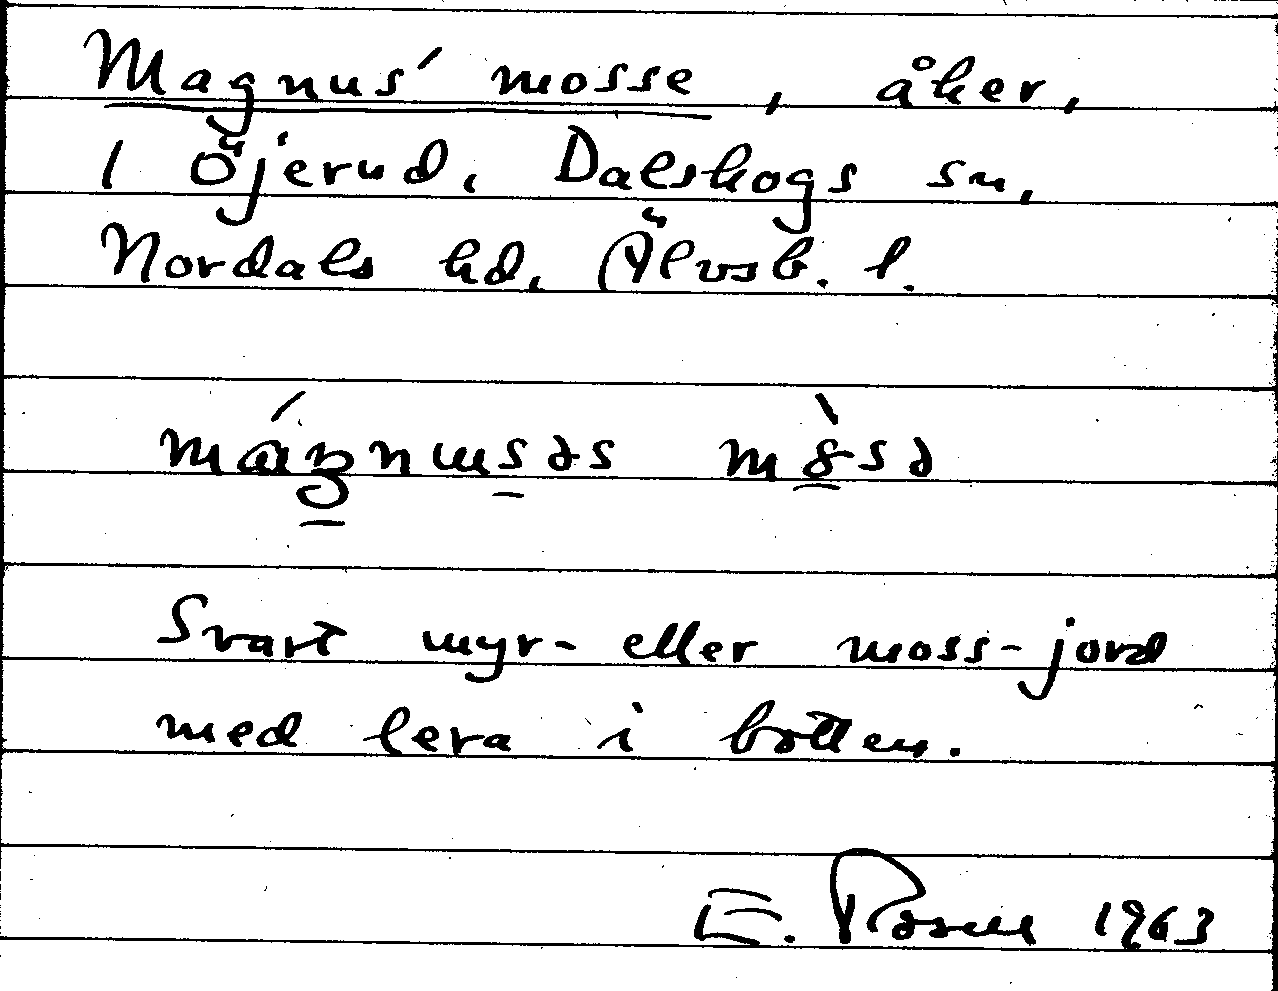 Magnus' mosse, åker,
i Öjerud, Dalskogs sn,
Nordals hd, Älvsb. l.
Svart myr- eller moss-jord
med lera i botten.
E. Rosell 1963